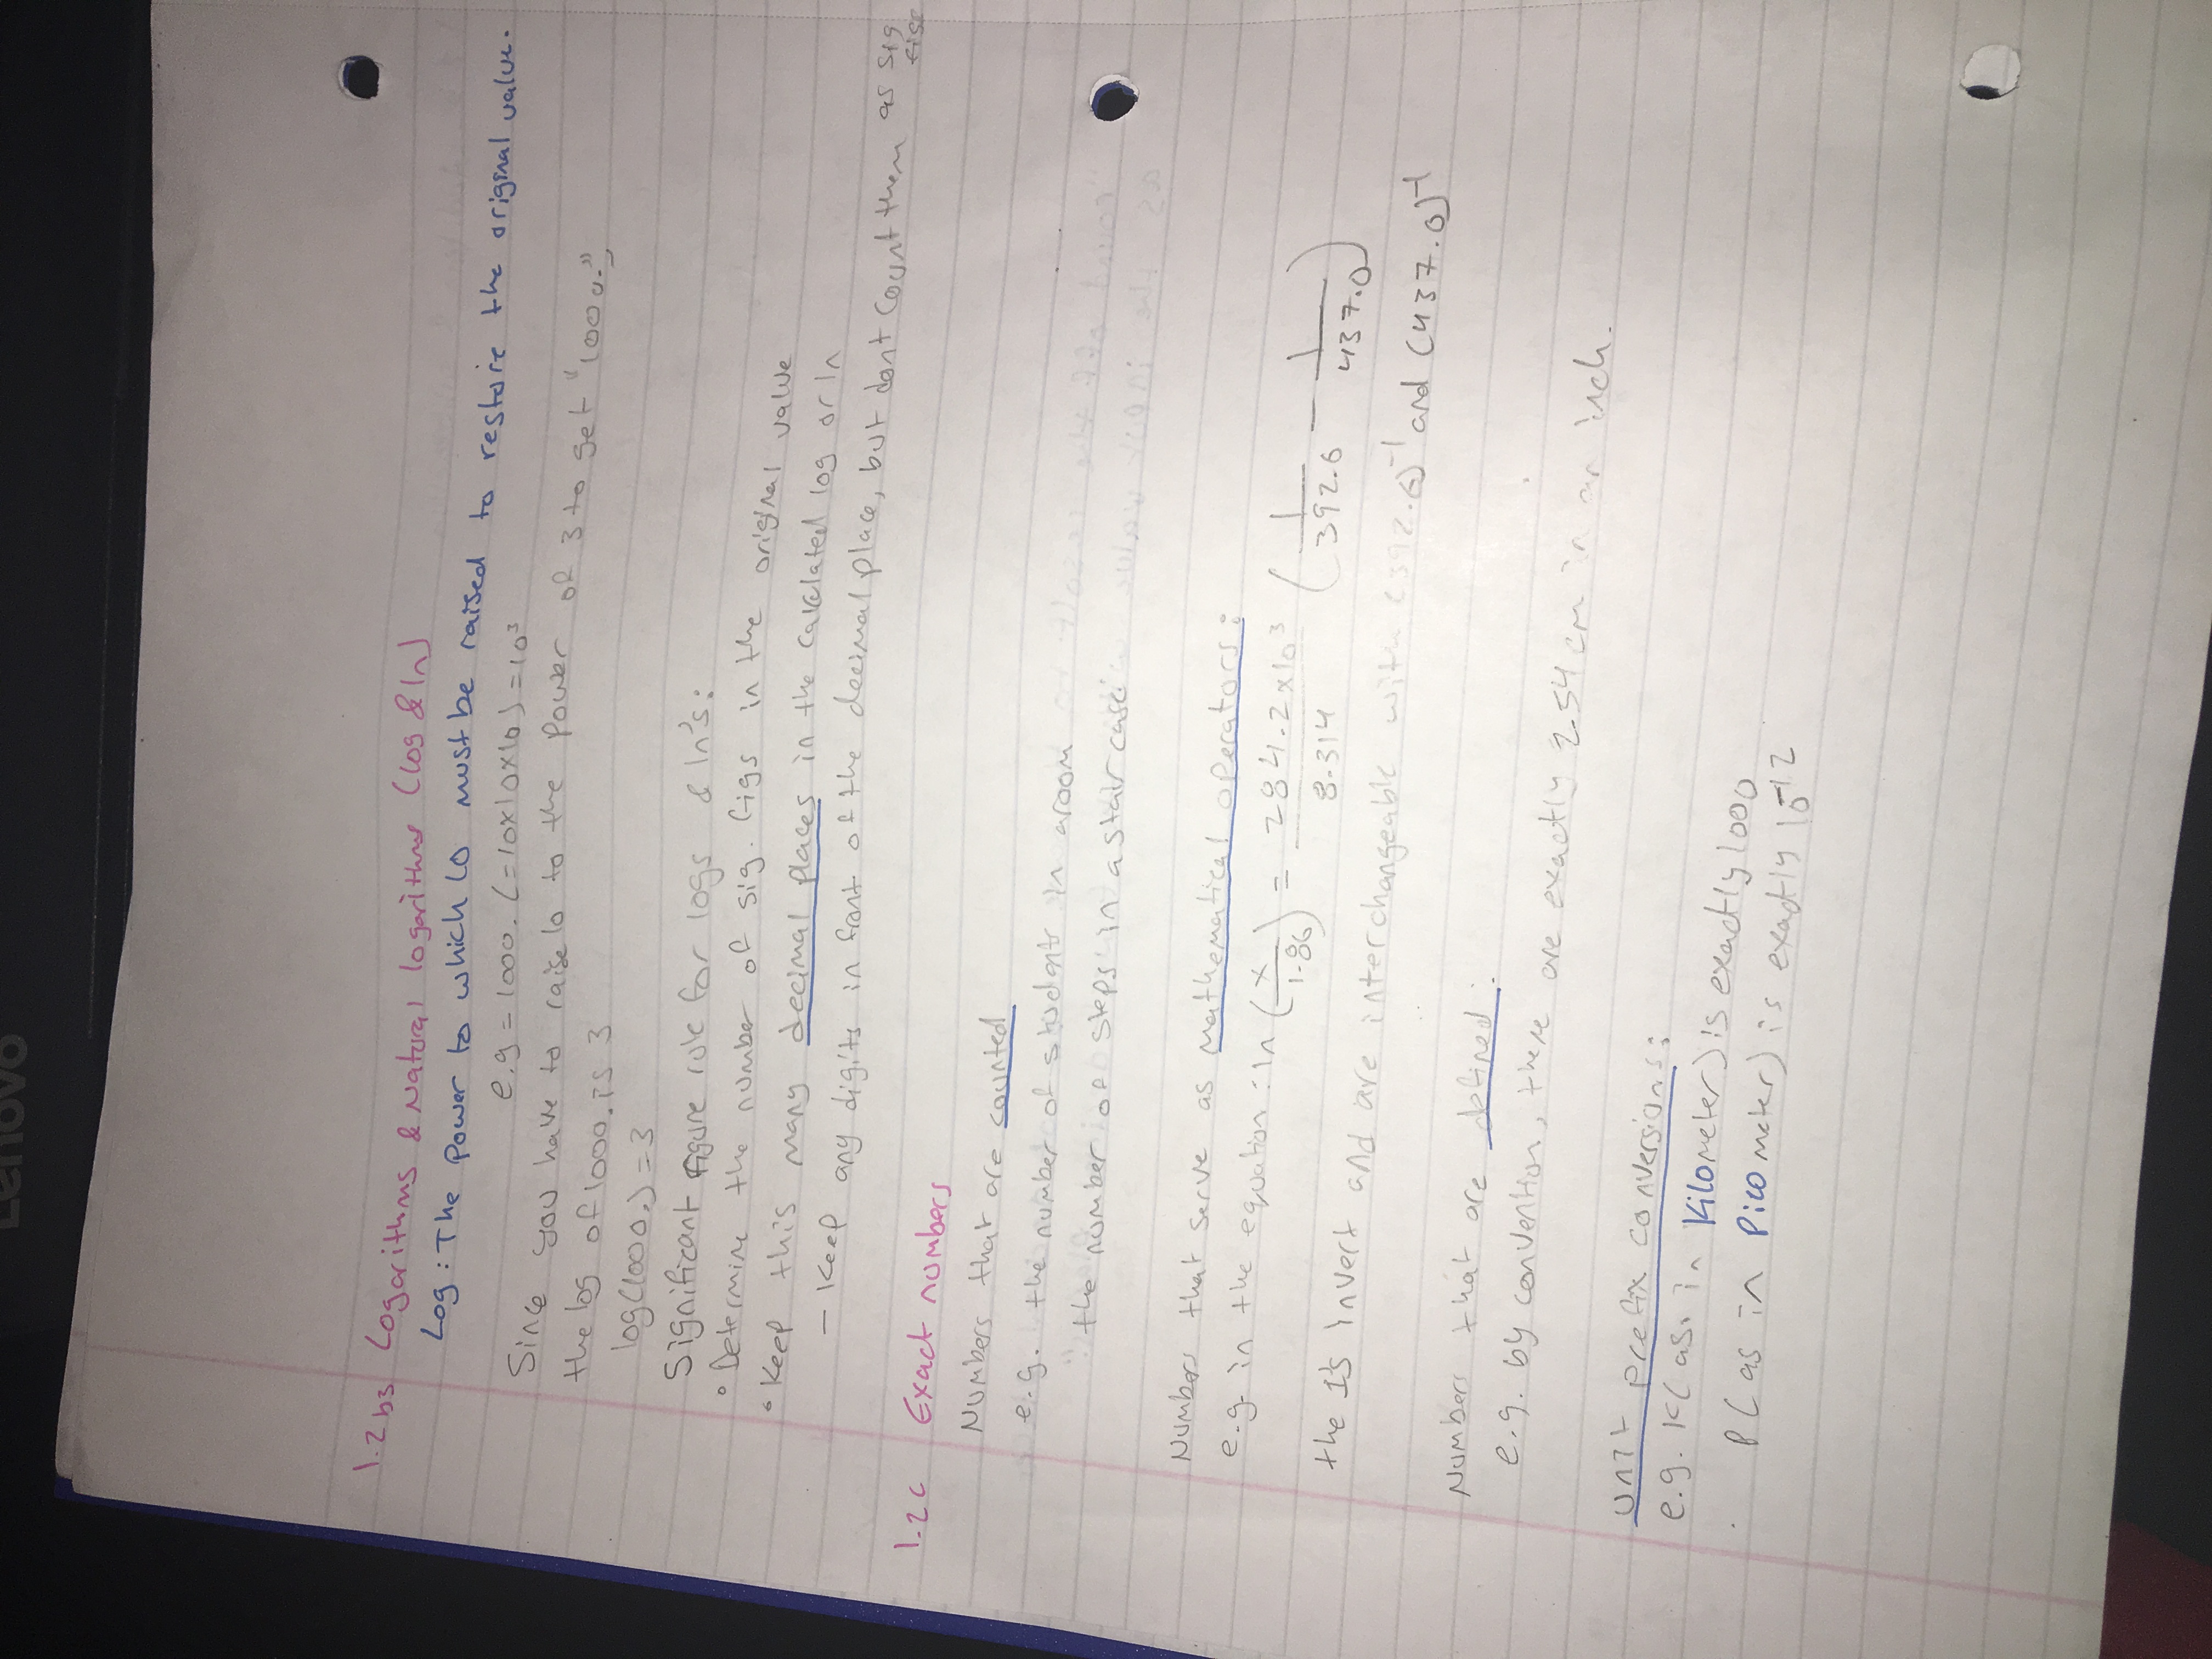 Lenovo
1.2b3 Logarithms & Natural logarithms (log & ln)
Log: The Power to which 10 must be raised to restore the original value.
e.g = 1000. (=10x10x10) = 10³
Since you have to raise 10 to the power of 3 to get "1000.",
the log of 1000. is 3
log(1000.) = 3
Significant Figure rule for logs & ln's:
• Determine the number of sig. figs in the original value
• Keep this many decimal places in the calculated log or ln
- Keep any digits in front of the decimal place, but dont count them as sig figs
1.2c Exact numbers
Numbers that are counted
e.g. the number of students in a room
the number of steps in a staircase
Numbers that serve as mathematical operators:
e.g in the equation: ln (x/1.86) = 284.2x10³/8.314 (1/392.6 - 1/437.0)
the 1s invert and are interchangeable with (392.6)⁻¹ and (437.0)⁻¹
Numbers that are defined:
e.g. by convention, there are exactly 2.54 cm in an inch.
Unit prefix conversions:
e.g. K (as in Kilometer) is exactly 1000
P (as in Picometer) is exactly 10⁻¹²